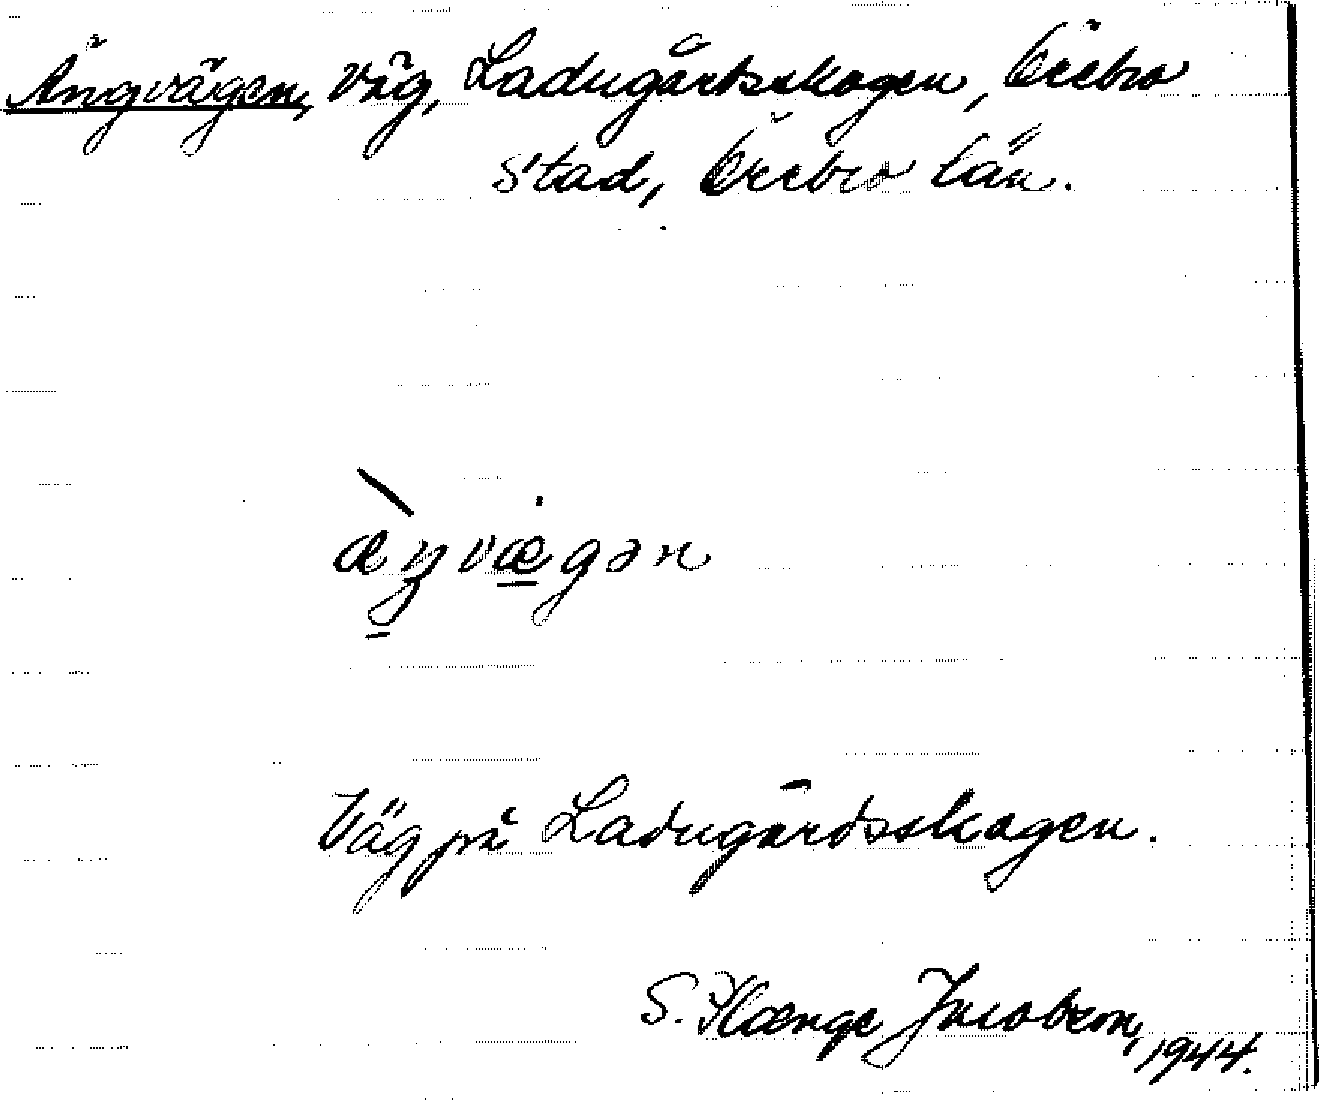 Ängvägen, väg, Ladugårdsskogen, Örebro
stad, Örebro län.
æ̀ŋvæ̇gən
Väg på Ladugårdsskogen.
S. Plænge Jacobson, 1944.